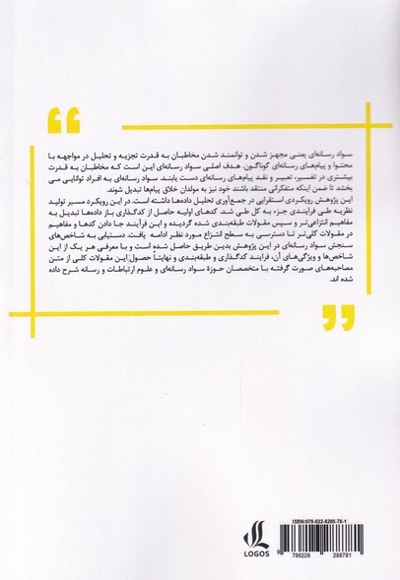 سواد رسانه‌ای یعنی مجهز شدن و توانمند شدن مخاطبان به قدرت تجزیه و تحلیل در مواجهه با
محتوا و پیام‌های رسانه‌ای گوناگون. هدف اصلی سواد رسانه‌ای این است که مخاطبان به قدرت
بیشتری در تفسیر، تعبیر و نقد پیام‌های رسانه‌ای دست یابند. سواد رسانه‌ای به افراد توانایی می
بخشد تا ضمن اینکه متفکرانی منتقد باشند خود نیز به مولدان خلاق پیام‌ها تبدیل شوند.
این پژوهش رویکردی استقرایی در جمع‌آوری تحلیل داده‌ها داشته است. در این رویکرد مسیر تولید
نظریه طی فرایندی جزء به کل طی شد. کدهای اولیه حاصل از کدگذاری باز داده‌ها تبدیل به
مفاهیم انتزاعی‌تر و سپس مقولات طبقه‌بندی شده گردیده و این فرآیند جا دادن کدها و مفاهیم
در مقولات کلی‌تر تا دسترسی به سطح انتزاع مورد نظر ادامه یافت. دستیابی به شاخص‌های
سنجش سواد رسانه‌ای در این پژوهش بدین طریق حاصل شده است و با معرفی هر یک از این
شاخص‌ها و ویژگی‌های آن، فرایند کدگذاری و طبقه‌بندی و نهایتاً حصول این مقولات کلی از متن
مصاحبه‌های صورت گرفته با متخصصان حوزهٔ سواد رسانه‌ای و علوم ارتباطات و رسانه شرح داده
شده اند.
LOGOS
ISBN: 978-622-6288-78-1
9 786226 288781